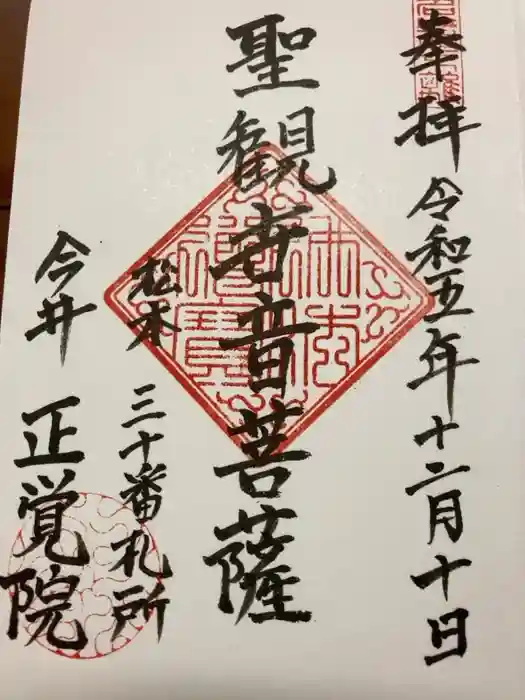 奉拝
令和五年十二月十日
聖観世音菩薩
松本
三十番札所
今井
正覚院